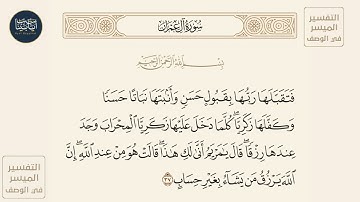 سُورَةُ آلِ عِمْرَانَ
التفسير
الميسر
في الوصف
بِسْمِ اللَّهِ الرَّحْمَٰنِ الرَّحِيمِ
فَتَقَبَّلَهَا رَبُّهَا بِقَبُولٍ حَسَنٍ وَأَنۢبَتَهَا نَبَاتًا حَسَنًا
وَكَفَّلَهَا زَكَرِيَّاۖ كُلَّمَا دَخَلَ عَلَيْهَا زَكَرِيَّا ٱلْمِحْرَابَ وَجَدَ
عِندَهَا رِزْقًاۖ قَالَ يَٰمَرْيَمُ أَنَّىٰ لَكِ هَٰذَاۖ قَالَتْ هُوَ مِنْ عِندِ ٱللَّهِۖ إِنَّ
ٱللَّهَ يَرْزُقُ مَن يَشَآءُ بِغَيْرِ حِسَابٍ ٣٧
التفسير
الميسر
في الوصف